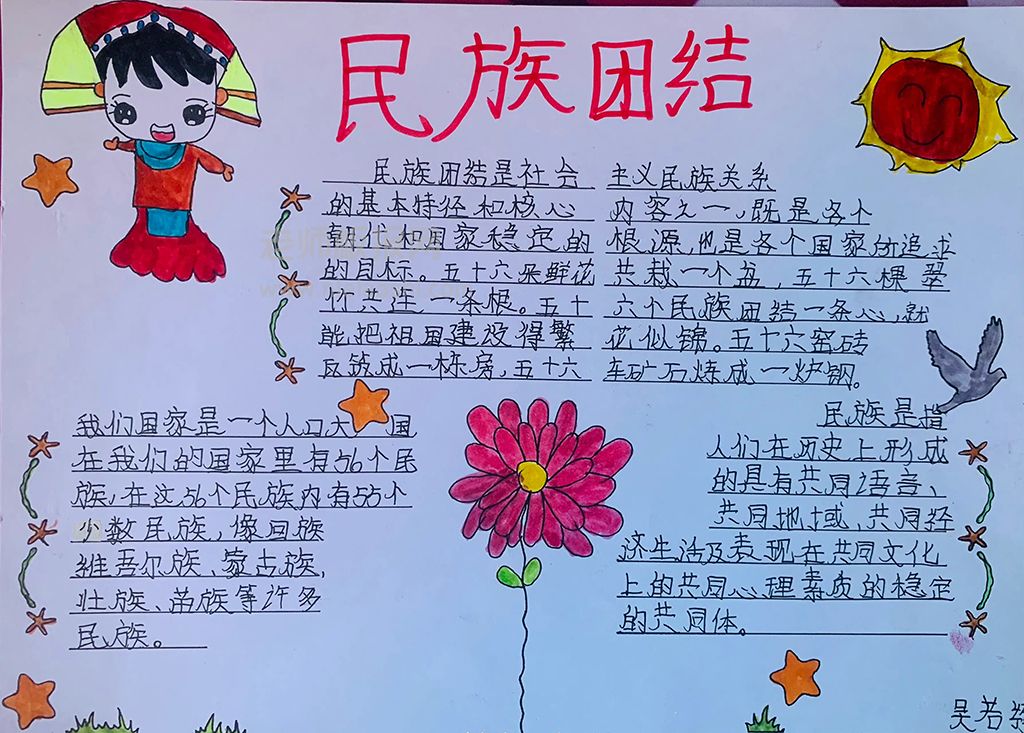 民族团结
民族团结是社会主义民族关系
的基本特径和核心内容之一,既是各个
朝代和国家稳定的根源,也是各个国家所追求
的目标。五十六朵鲜花共栽一个盆,五十六棵翠
竹共连一条根。五十六个民族团结一条心,就
能把祖国建设得繁花似锦。五十六窑砖
瓦筑成一栋房,五十六车矿石炼成一炉钢。
我们国家是一个人口大国
在我们的国家里有56个民
族,在这56个民族内有55个
少数民族,像回族
维吾尔族、蒙古族,
壮族、苗族等许多
民族。
民族是指
人们在历史上形成
的具有共同语言、
共同地域、共同经
济生活及表现在共同文化
上的共同心理素质的稳定
的共同体。
吴若